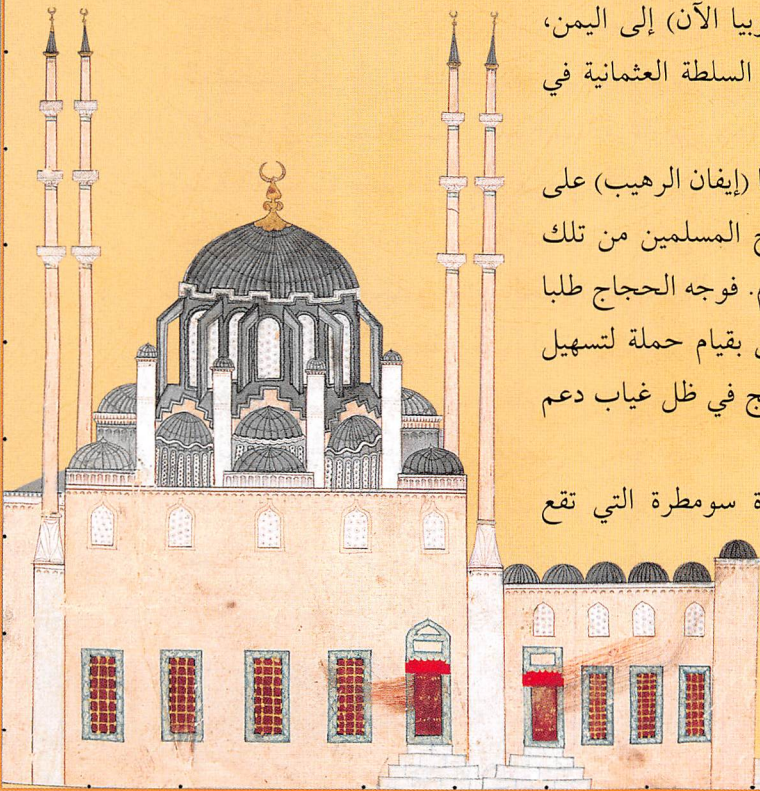 الآن) إلى اليمن،
السلطة العثمانية في
(إيفان الرهيب) على
المسلمين من تلك
فوجه الحجاج طلبا
بقيام حملة لتسهيل
في ظل غياب دعم
سومطرة التي تقع